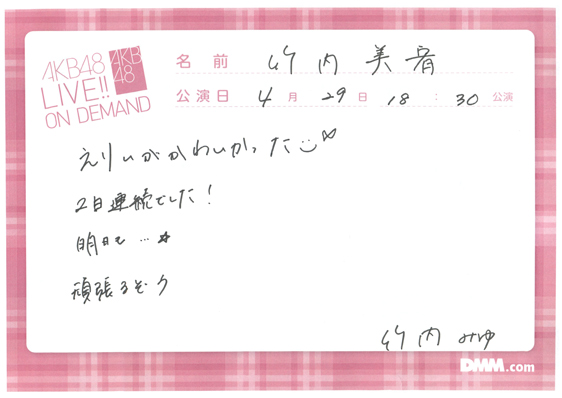 AKB48
LIVE!!
ON DEMAND
AKB
48
名前 竹内美宥
公演日 4月29日 18:30公演
えりぃがかわいかった
2日連続でした!
明日も…☆
頑張るぞう
竹内みゆ
DMM.com